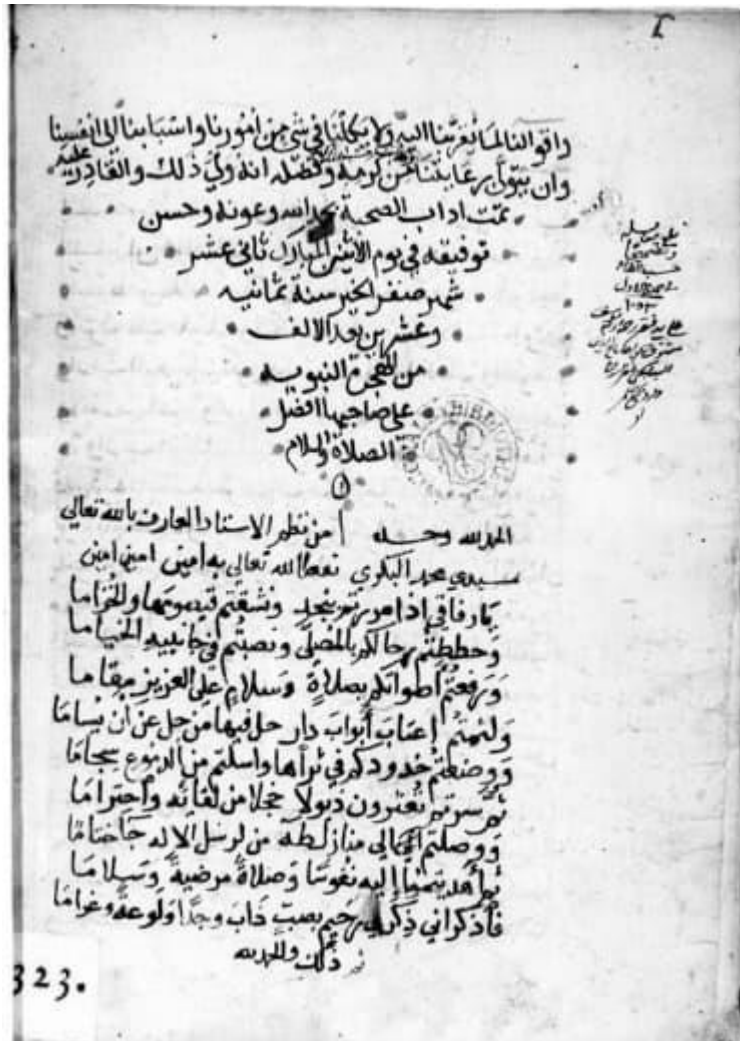 واقوالنا لما يقربنا اليه ولا يكلنا في شي من امورنا واسبابنا الى انفسنا
وان يتولى رعايتنا بمن كرمه وفضله انه ولي ذلك والقادر عليه
تمت اداب الصحبة بحمد الله وعونه وحسن
توفيقه في يوم الاثنين المبارك ثاني عشر
شهر صفر الخير سنة ثمانيه
وعشرين بعد الالف
من الهجرة النبويه
على صاحبها افضل
الصلاة والسلام
الحمد لله وحده من نظم الاستاذ العارف بالله تعالي
سيدي محمد البكري نفعنا الله تعالي به امين امين امين
يا رفاقي اذا مررتم بنجد ونشقتم قيصومها والخزاما
وحططتم رحالكم بالمصلى ونصبتم في جانبيه الخياما
ورفعتم اصواتكم بصلاة وسلام علي العزيز مقاما
ولثمتم اعتاب أبواب دار حل فيها من جل عن ان يساما
ووضعتم خدودكم في ثراها واسلتم من الدموع سجاما
ثم سرتم تعثرون ذيولا خجلا من لقائه واحتراما
ووصلتم الي منازل طه من لرسل الاله جا ختاما
ثم أهديتموا إليه نفوسا وصلاة مرضية وسلاما
فاذكراني ذكرى رحيم بصب ذاب وجدا ولوعة وغراما
تم ذلك والحمد لله
323.